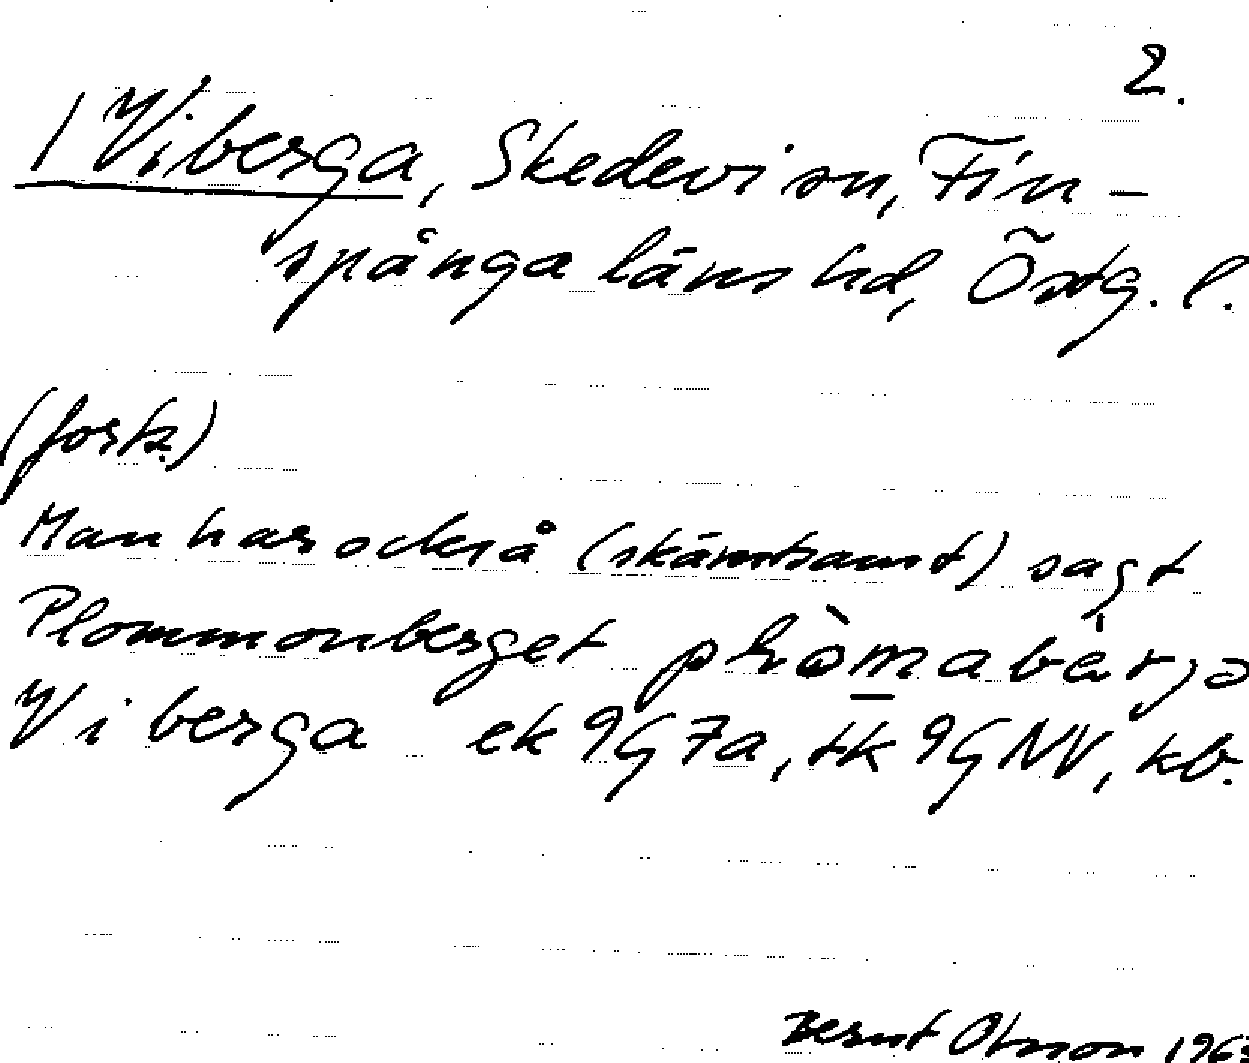 2.
/ Viberga, Skedevi sn, Fin-
spånga läns hd, Östg. l.
(forts.)
Man har också (skämtsamt) sagt
Plommonberget
Viberga ek 9G7a, tk 9GNV, kb.
Bernt Olsson